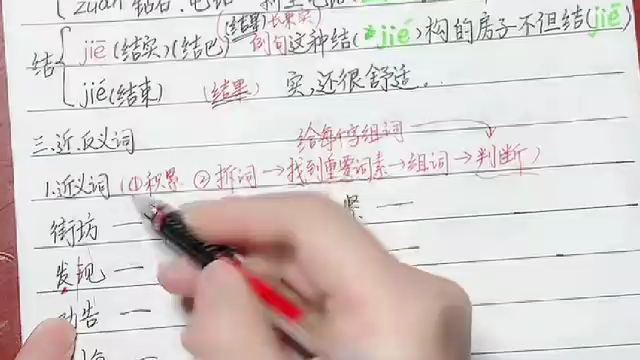 结 jiē (结实)(结巴) (结果) 长果实
例句 这种结(jié)构的房子不但结(jiē)
jié (结束) (结果) 实,还很舒适。
三.近.反义词
给每个字组词
1.近义词 (①积累 ②拆词→找到重要词素→组词→判断)
街坊 —
发现 —
劝告 —